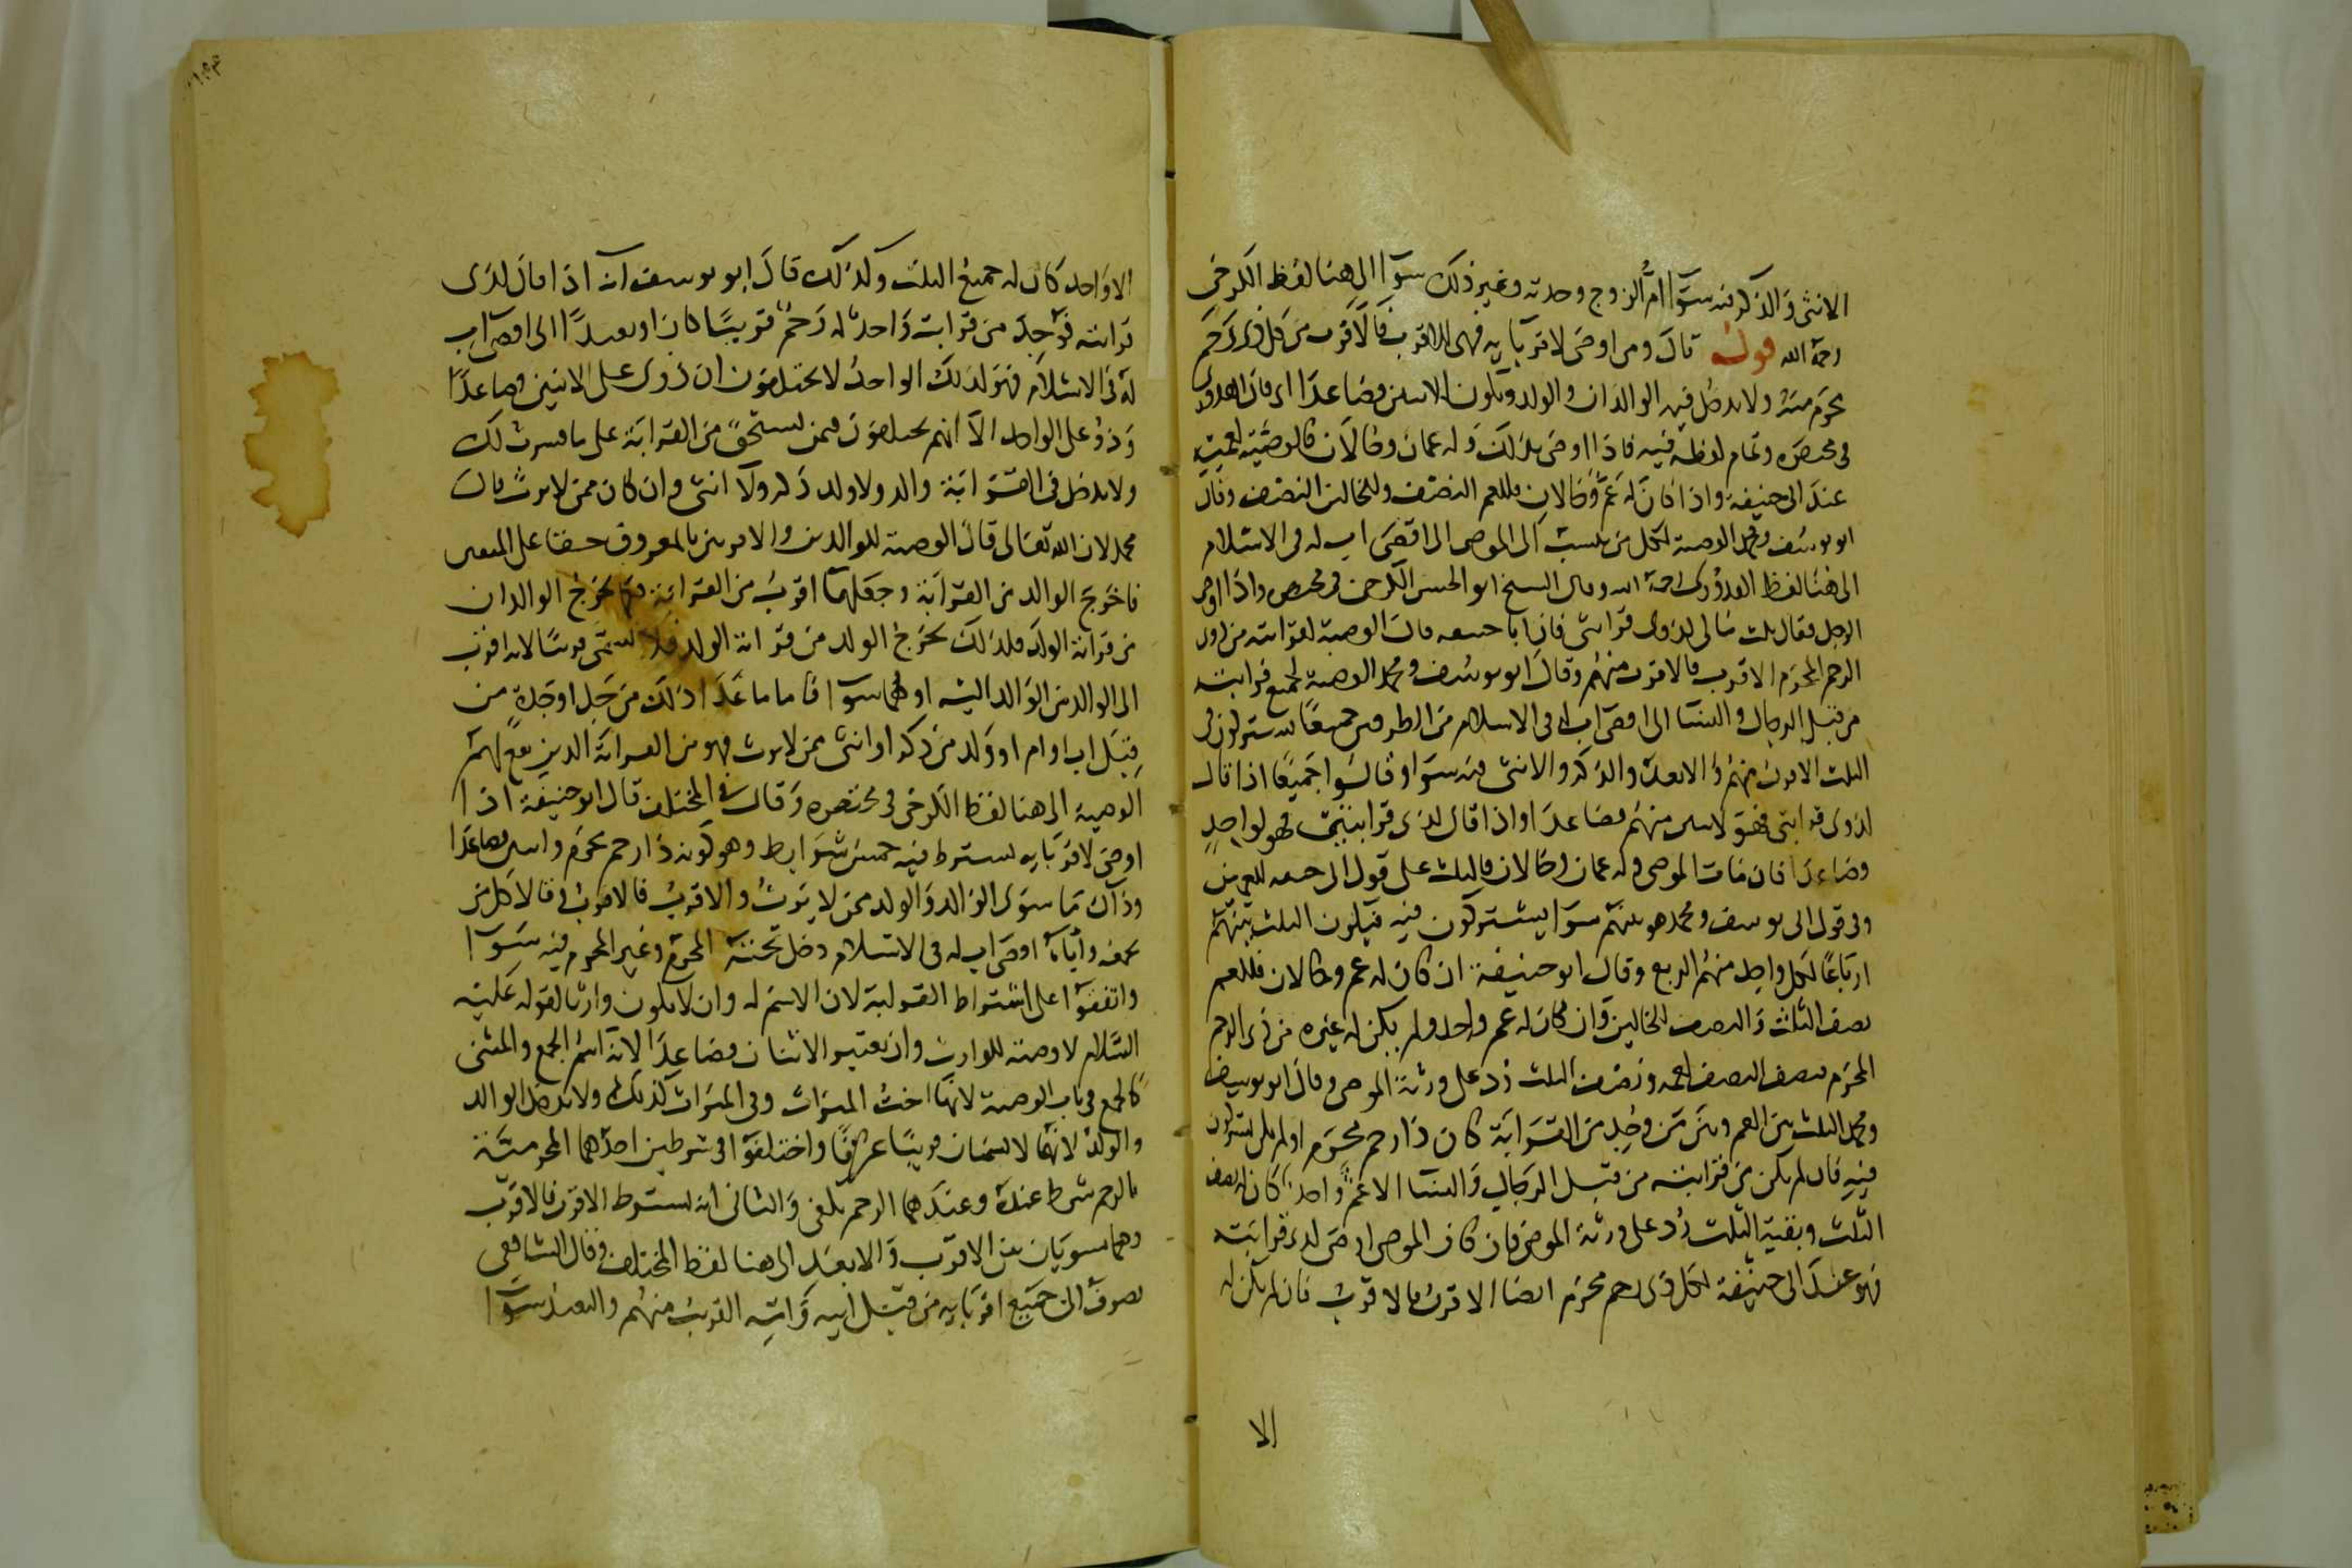 الانثى والذكر فيه سوآ ام الزوج وجدته وغير ذلك سوآ الى هنا لفظ الكرخى
رحمه الله قوله قال ومن اوصى لاقربايه فهى للاقرب فالاقرب من كل ذى رحم
محرم منه ولا يدخل فيه الوالدان والولد ويكون للاثنين فصاعدا اى قال القدورى
فى مختصره وتمام لفظه فيه فاذا اوصى بذلك وله عمان وخالان فالوصية لعميه
عند ابى حنيفة واذا كان له عم وخالان فللعم النصف وللخالين النصف وقال
ابو يوسف ومحمد الوصية لكل من ينسب الى الموصى الى اقصى اب له فى الاسلام
الى هنا لفظ القدورى رحمه الله وقال الشيخ ابو الحسن الكرخى فى مختصره واذا اوصى
الرجل فقال ثلث مالى لذوى قرابتى فان ابا حنيفه قال الوصية لقرابته من ذوى
الرحم المحرم الاقرب فالاقرب منهم وقال ابو يوسف ومحمد الوصية لجميع قرابته
من قبل الرجال والنسا الى اقصى اب له فى الاسلام من الطرفين جميعا يشتركون فى
الثلث الاقرب منهم والابعد والذكر والانثى فيه سوآ وقالوا جميعا اذا قال
لذوى قرابتى فهو لاثنين منهم فصاعدا واذا قال لذى قرابتى فهو لواحد
فصاعدا فان مات الموصى وله عمان وخالان فالثلث على قول ابى حنيفه للعمين
وفى قول ابى يوسف ومحمد هو بينهم سوآ يشتركون فيه فيكون الثلث بينهم
ارباعا لكل واحد منهم الربع وقال ابو حنيفة ان كان له عم وخالان فللعم
نصف الثلث والنصف للخالين وان كان له عم واحد ولم يكن له غيره من ذى الرحم
المحرم فنصف النصف لعمه ونصف الثلث رد على ورثة الموصى وقال ابو يوسف
ومحمد الثلث بين العم وبين من وجد من القرابة كان ذا رحم محرم او لم يكن يشتركون
فيه فان لم يكن من قرابته من قبل الرجال والنسا الا عم واحد كان له نصف
الثلث وبقية الثلث رد على ورثة الموصى فان كان الموصى اوصى لذى قرابته
فهو عند ابى حنيفة لكل ذى رحم محرم ايضا الاقرب فالاقرب فان لم يكن له
الا
الا واحد كان له جميع الثلث وكذلك قال ابو يوسف انه اذا قال لذى
قرابته فوجد من قرابته واحد له رحم قريبا كان او بعيدا الى اقصى اب
له فى الاسلام فهو لذلك الواحد لا يختلفون ان ذوى على الاثنين فصاعدا
وذو على الواحد الا انهم يختلفون فيمن يستحق من القرابة على ما فسرت لك
ولا يدخل فى القرابة والد ولا ولد ذكر ولا انثى وان كان ممن لا يرث قال
محمد لان الله تعالى قال الوصية للوالدين والاقربين بالمعروف حقا على المتقين
فاخرج الوالدين من القرابة وجعلهما اقرب من القرابة فكما يخرج الوالدان
من قرابة الولد فلذلك يخرج الولد من قرابة الوالد فلا يسمى قريبا لانه اقرب
الى الوالد من الوالد اليه او هما سوآ فاما ما عدا ذلك من جد او جدة من
قبل اب او ام او ولد من ذكر او انثى ممن لا يرث فهو من القرابة الذين تقع لهم
الوصية الى هنا لفظ الكرخى فى مختصره وقال فى المختلف قال ابو حنيفة اذا
اوصى لاقربايه يشترط فيه خمس شرايط وهو كونه ذا رحم محرم واثنين فصاعدا
وذاك ما سوى الوالد والولد ممن لا يرث والاقرب فالاقرب وقالا كل من
يجمعه واباه اقصى اب له فى الاسلام دخل تحته المحرم وغير المحرم فيه سوآ
واتفقوا على اشتراط القرابة لان الاسم له وان لا يكون وارثا لقوله عليه
السلام لا وصية للوارث وان يعتبر الاثنان فصاعدا لانه اسم الجمع والمثنى
كالجمع فى باب الوصية لانها اخت الميراث وفى الميراث كذلك ولا يدخل الوالد
والولد لانهما لا يسميان قريبا عرفا واختلفوا فى شرطين احدهما المحرمية
بالرحم شرط عنده وعندهما الرحم يكفى والثانى انه يشترط الاقرب فالاقرب
وهما يسويان بين الاقرب والابعد الى هنا لفظ المختلف وقال الشافعى
يصرف الى جميع اقربايه من قبل ابيه وامه القريب منهم والبعيد سوآ